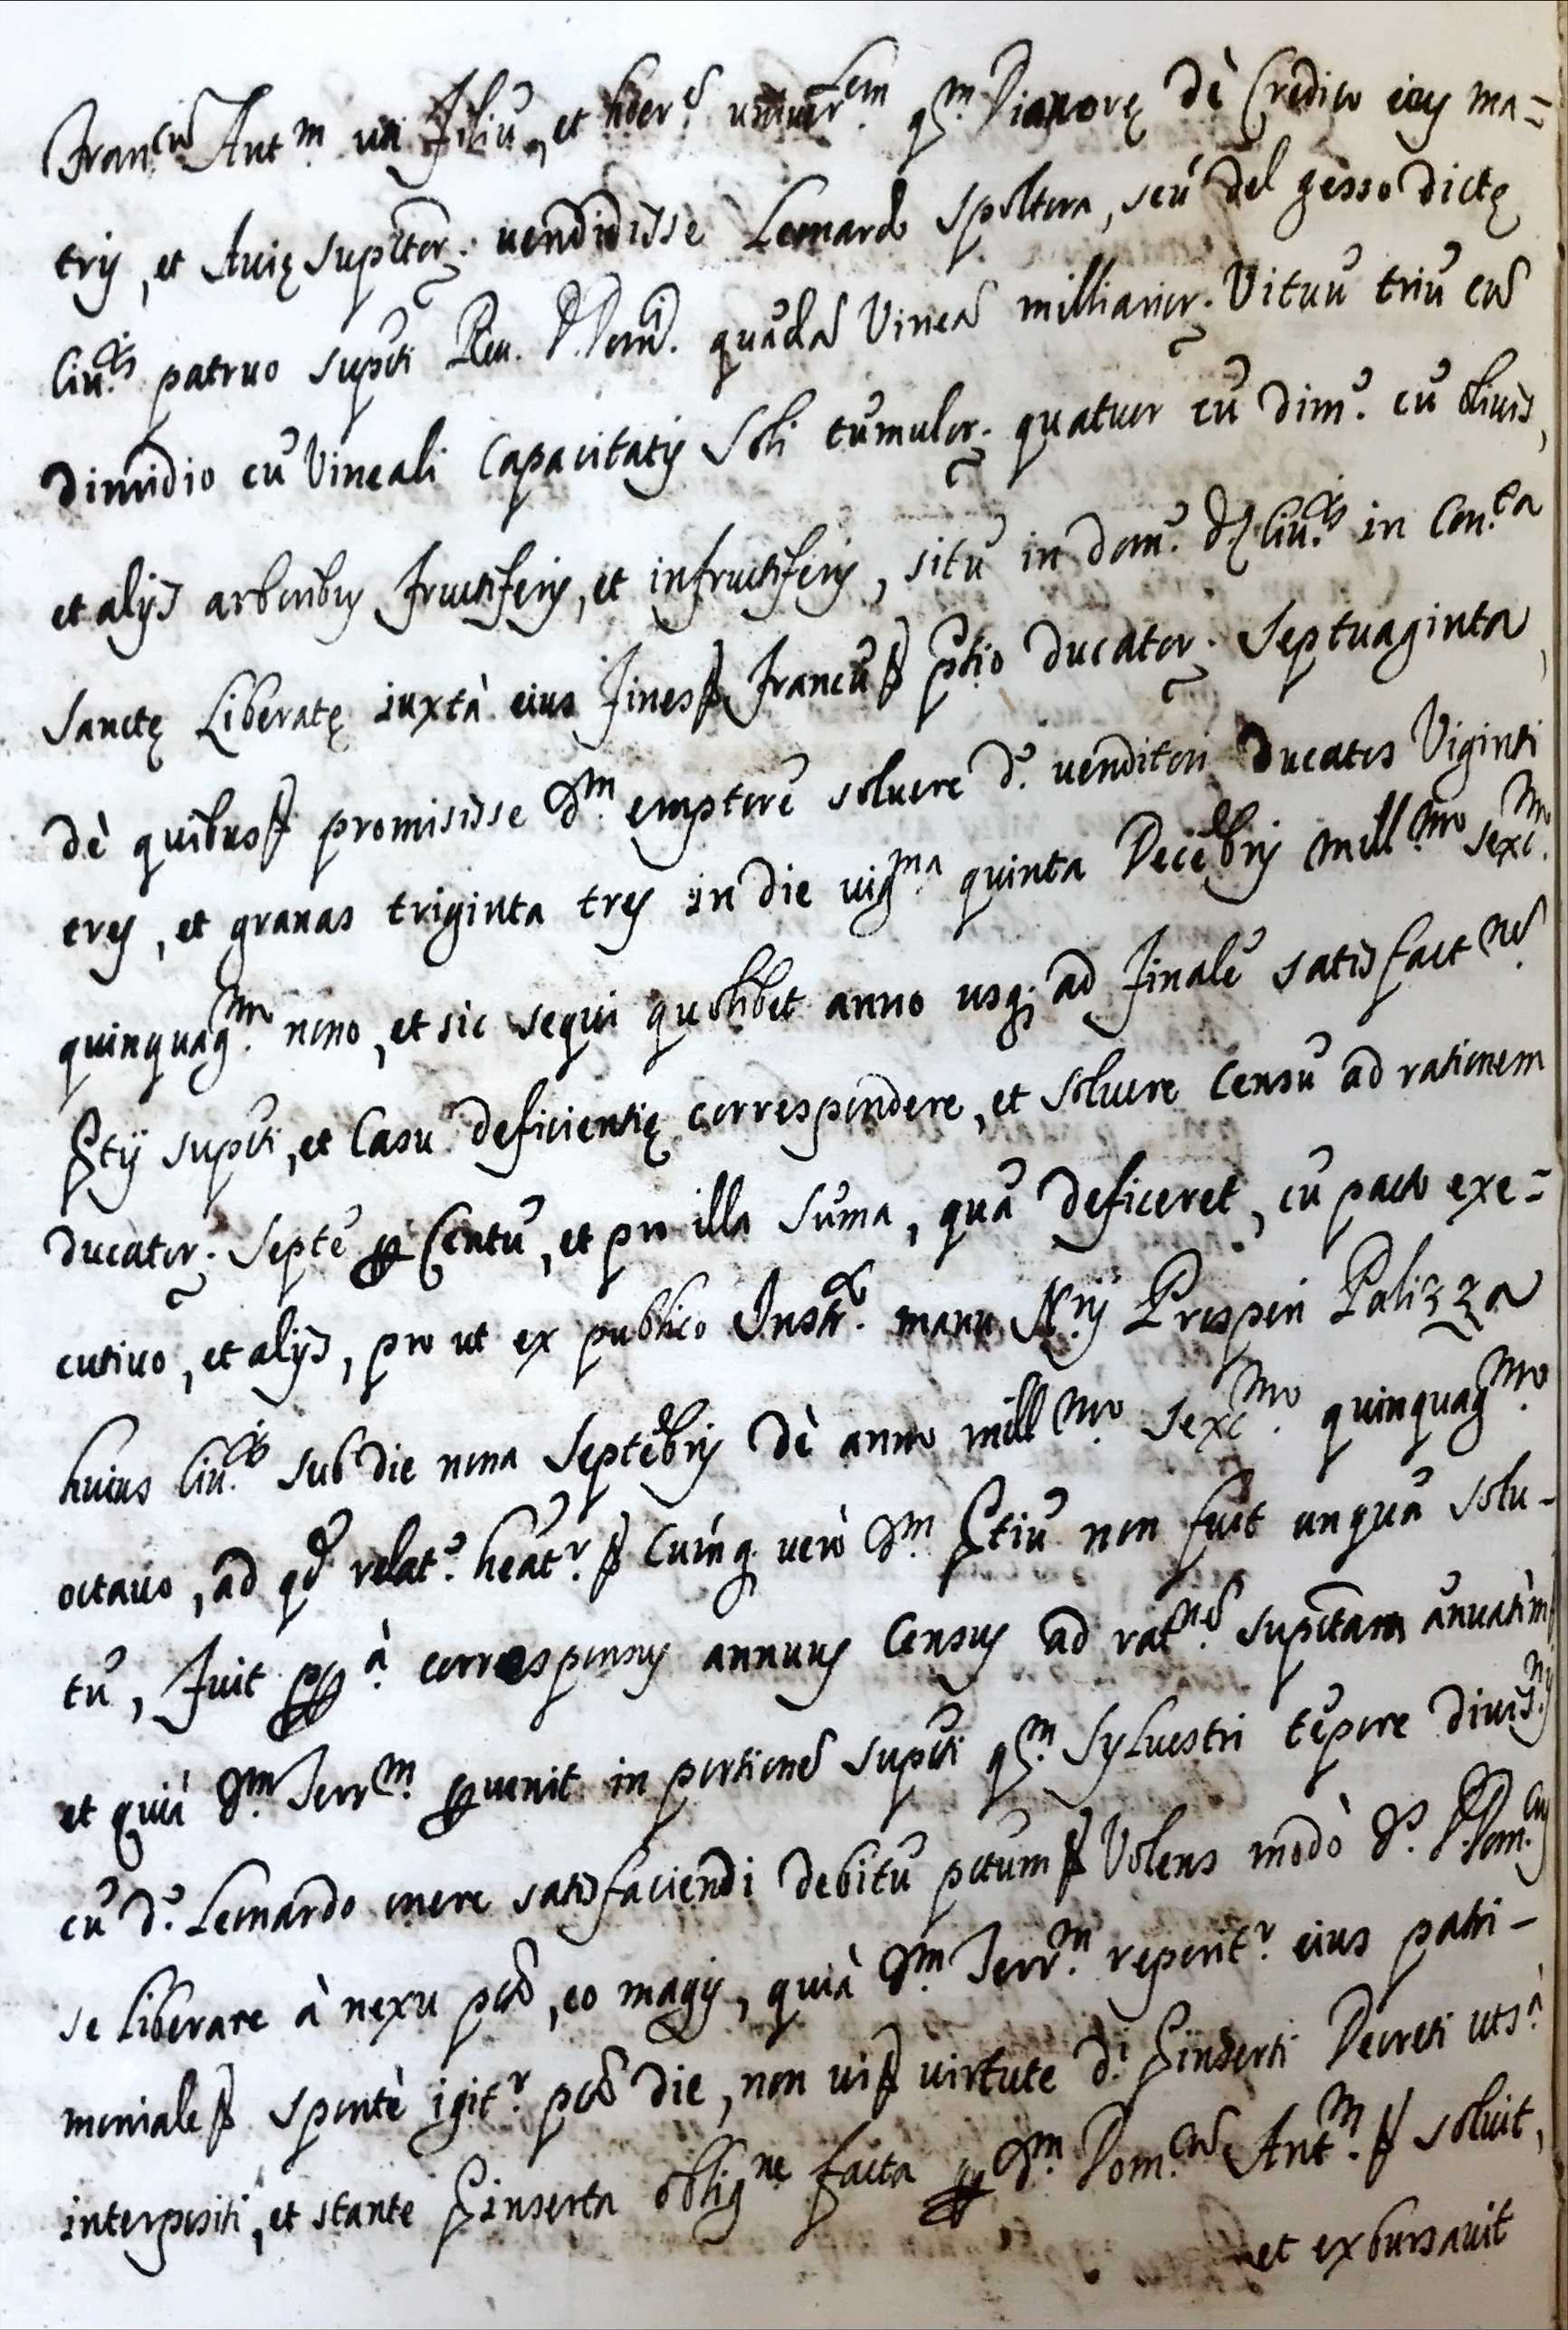 Fran.cũ Ant.m uti filiũ, et hoer.ẽ univer.lem q.m Dianorę dè Credico eius ma=
tris, et Avię supctor. vendidisse Leonardo Spoltora, seù del gesso dictę
Civ.tis patruo supcti Reu. D. Dom.ci quãdã Vineã milliarior. Vituũ triũ cũ
dimidio cũ Vineali Capacitatis Soli tumulor. quatuor cũ dim.o cũ olivis,
et alijs arboribus fructiferis, et infructiferis, sitũ in dom.o d.ę Civ.tis in Con.ta
Sanctę Liberatę iuxtà eius fines p. francũ p. p̃tio ducator. Septuaginta,
dè quibus p. promisisse d.m emptorẽ solvere d.o venditori ducatos Viginti
tres, et granas triginta tres in die vig.ma quinta Decẽbris mill.mo sexc.mo
quinquag.mo nono, et sic sequi quolibet anno usq; ad finalẽ satisfact.nẽ
p̃tij supcti, et Casu deficientię correspondere, et solvere Censũ ad rationem
ducator. Septẽ p Centũ, et pro illa sũma, quã deficeret, cũ pacto exe=
cutivo, et alijs, pro ut ex publico Instr.o manu N.rij Prosperi Palizza
huius Civ.tis sub die nona Septẽbris dè anno mill.mo sexc.mo quinquag.mo
octavo, ad qd relat.o heat.r p. Cumq. verò d.m p̃tiũ non fuit unquã solu-
tũ, fuit pp.à corresponsus annuus Census ad rat.nẽ supctam ãnuatìm
et quià d.m Terr.m pvenit in portionẽ supcti q.m Sylvestri tẽpore divis.nis
cũ d.o Leonardo onere satisfaciendi debitũ pctum p. Volens modò d.s D. Dom.cus
se liberare à nexu pcto, eo magis, quià d.m Terr.m reperit.r eius patri-
moniale p. spontè igit.r pcto die, non vi p. virtute d.i p̃inserti Decreti uts.a
interpositi, et stante p̃inserta oblig.ne facta p d.m Dom.cũ Ant.m p. solvit,
et exbursavit